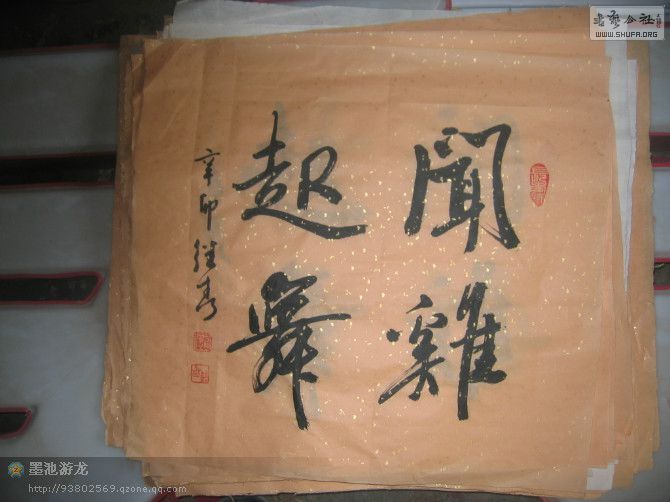 聞雞
起舞
辛卯 继春
书艺公社
WWW.SHUFA.ORG
墨池游龙
http://93802569.qzone.qq.com